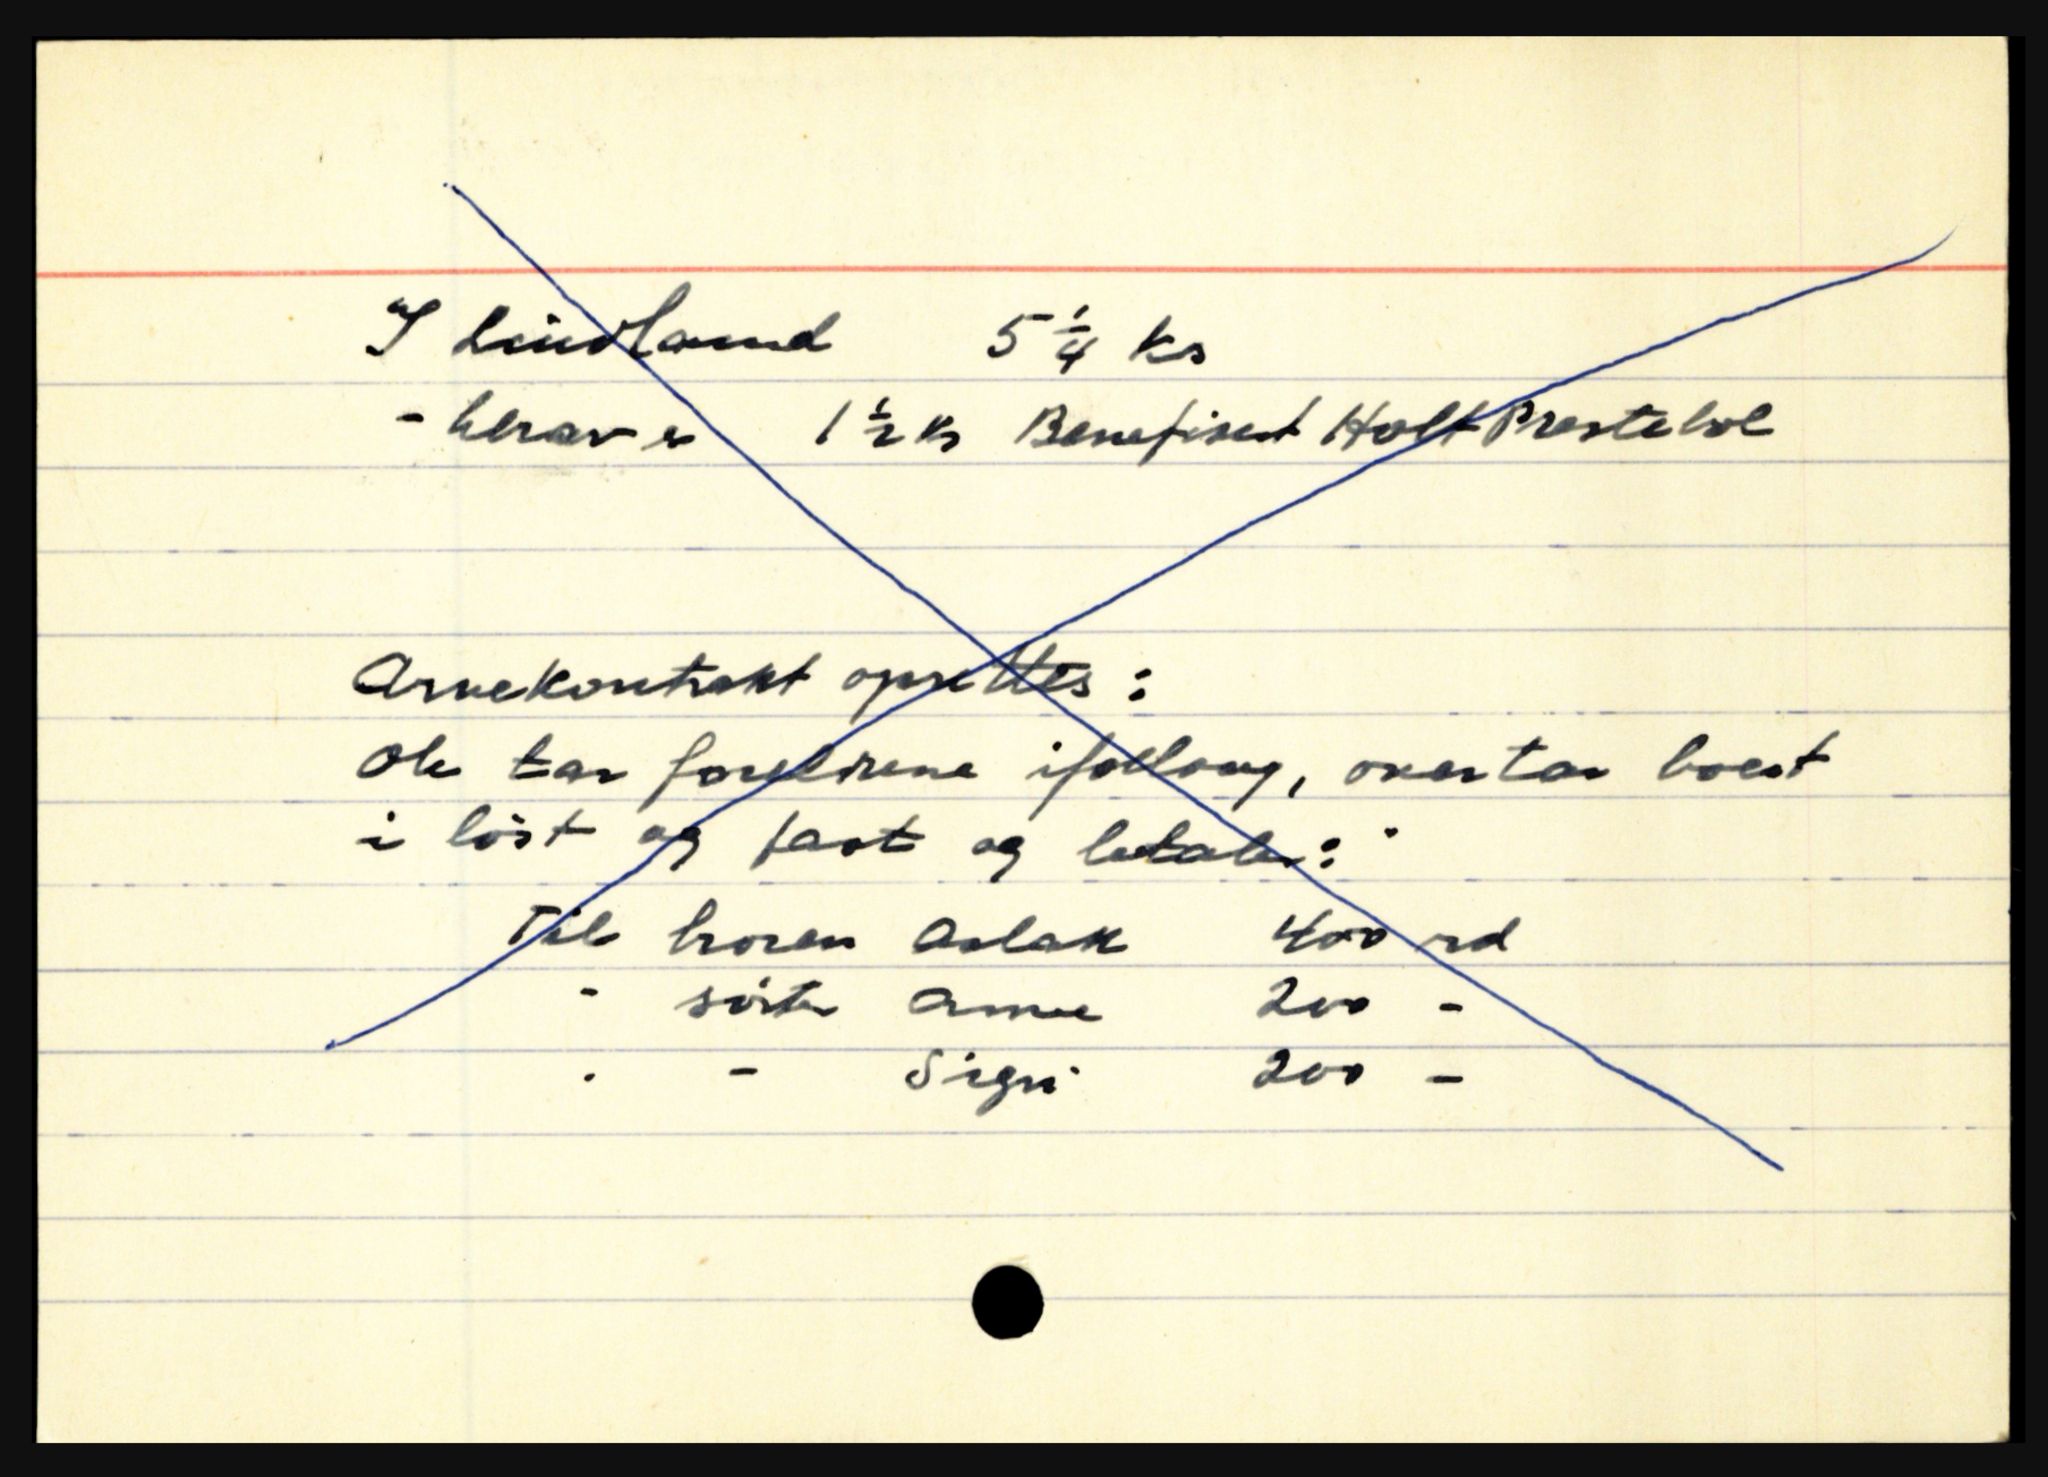 I Lindland 5 1/4 ks
- herav er 1 1/2 ks Benefisert Holt Prestebol
Arvekontrakt opsettes :
Ole tar foreldrene i follaug, overtar boet
i löst og fast og betaler :
Til broren Aslak 400 rd
- söster Anne 200 -
. - Sigri 200 -